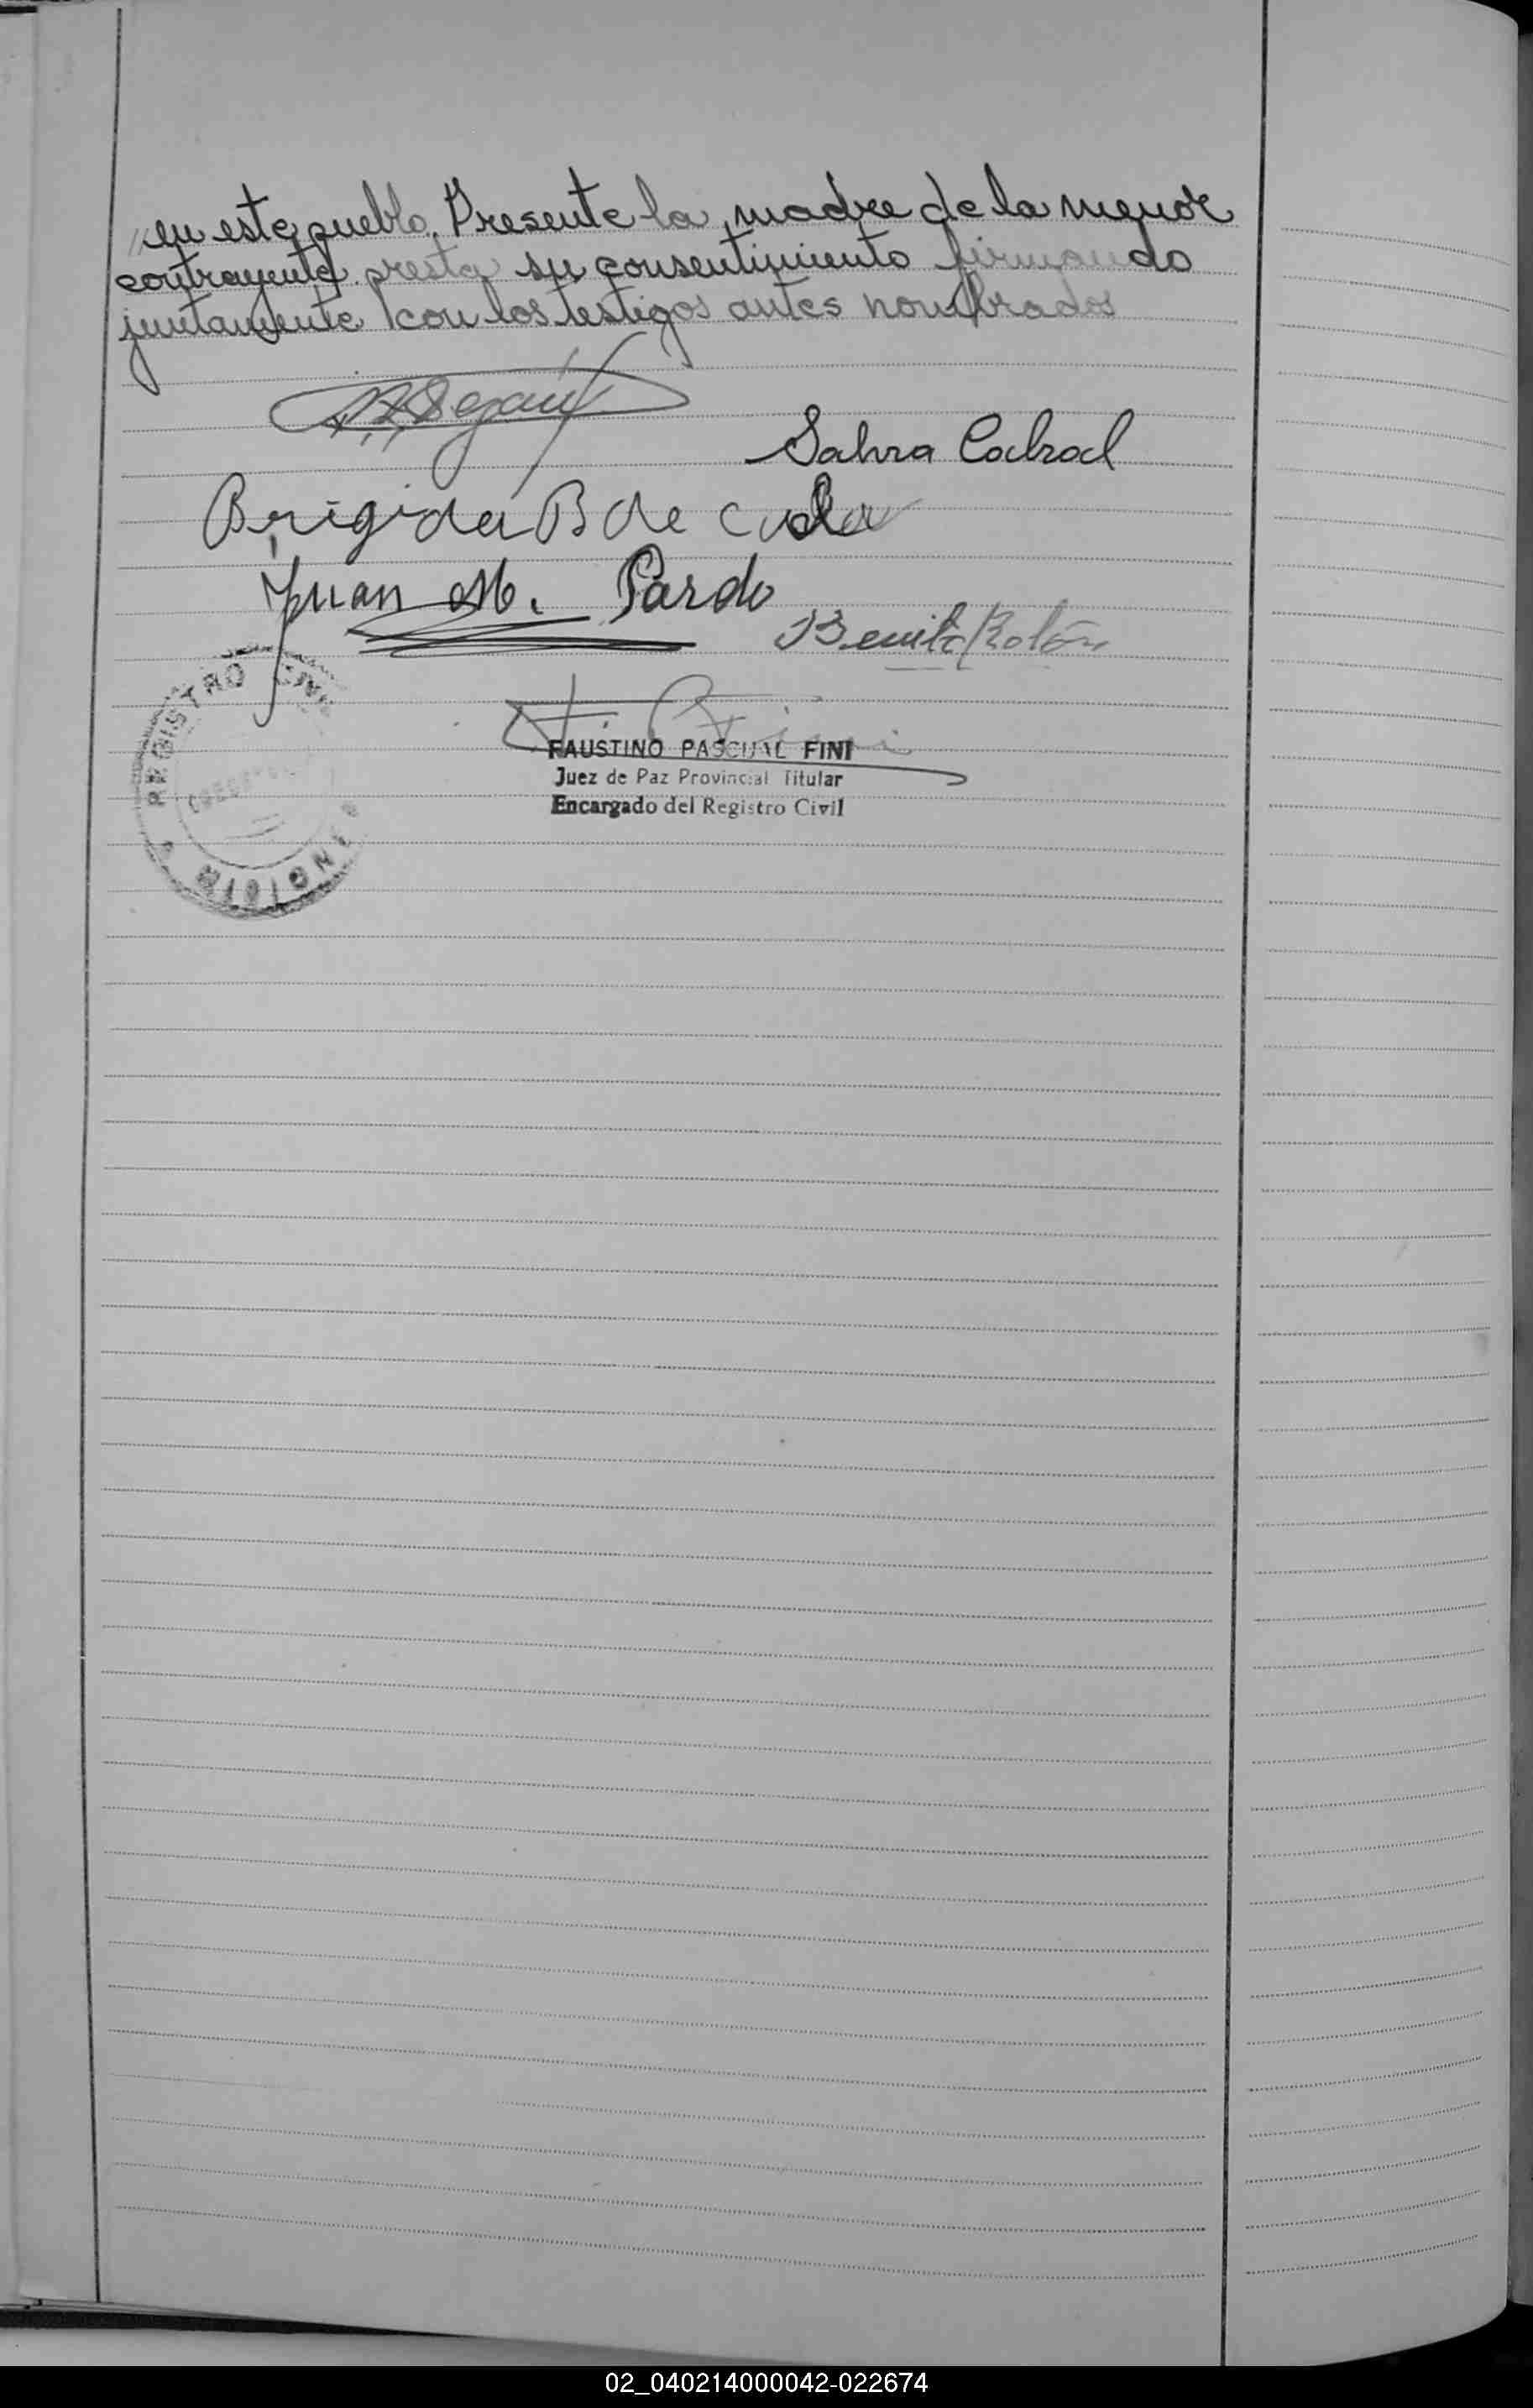 // en este pueblo. Presente la madre de la menor
contrayente presta su consentimiento firmando
juntamente con los testigos antes nombrados
Sahra Cabral
Brigida B de
Juan M. Pardo
Benita Rolón
F. P. Fini
FAUSTINO PASCUAL FINI
Juez de Paz Provincial Titular
Encargado del Registro Civil
REGISTRO CIVIL
MISIONES
02_040214000042-022674